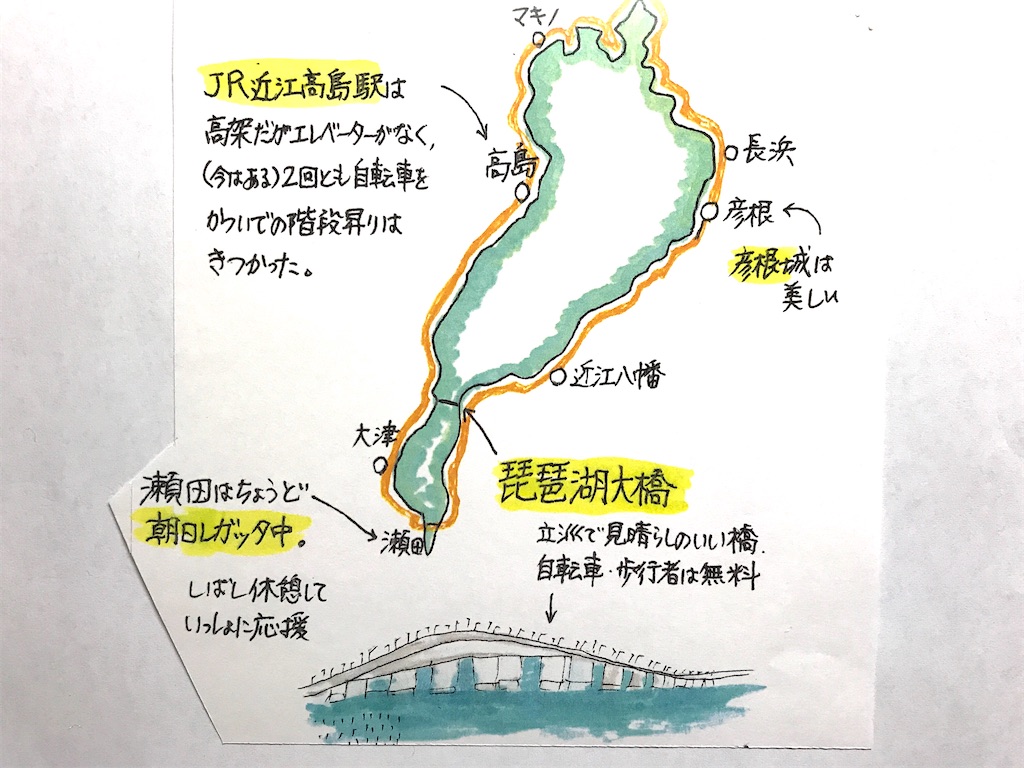 マキノ
JR近江高島駅は
高架だがエレベーターがなく、
(今はある)2回とも自転車を
かついでの階段昇りは
きつかった。
高島
長浜
彦根
彦根城は
美しい
近江八幡
大津
琵琶湖大橋
立派で見晴らしのいい橋.
自転車・歩行者は無料
瀬田はちょうど
朝日レガッタ中。
瀬田
しばし休憩して
いっしょに応援